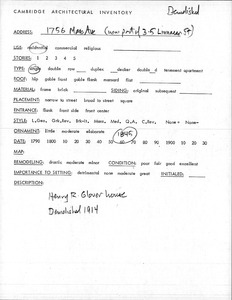 Demolished
CAMBRIDGE ARCHITECTURAL INVENTORY
ADDRESS: 1756 Mass Ave (now part of 3-5 Linnaean St)
USE: residential commercial religious
STORIES: 1 2 3 4 5
TYPE: single double row duplex decker double decker tenement apartment
ROOF: hip gable hip gable flank mansard flat
MATERIAL: frame brick SIDING: original subsequent
PLACEMENT: narrow to street broad to street square
ENTRANCE: flank front side front center
STYLE: Ital. Med. Q.A. None
ORNAMENT: little moderate elaborate
DATE: 1790 1800 10 20 30 40 50 60 70 80 90 1900 10 20 30
MAP:
REMODELING: drastic moderate minor CONDITION: poor fair good excellent
IMPORTANCE TO SETTING: detrimental none moderate great INITIALED:
DESCRIPTION:
Henry R. Glover house
Demolished 1914